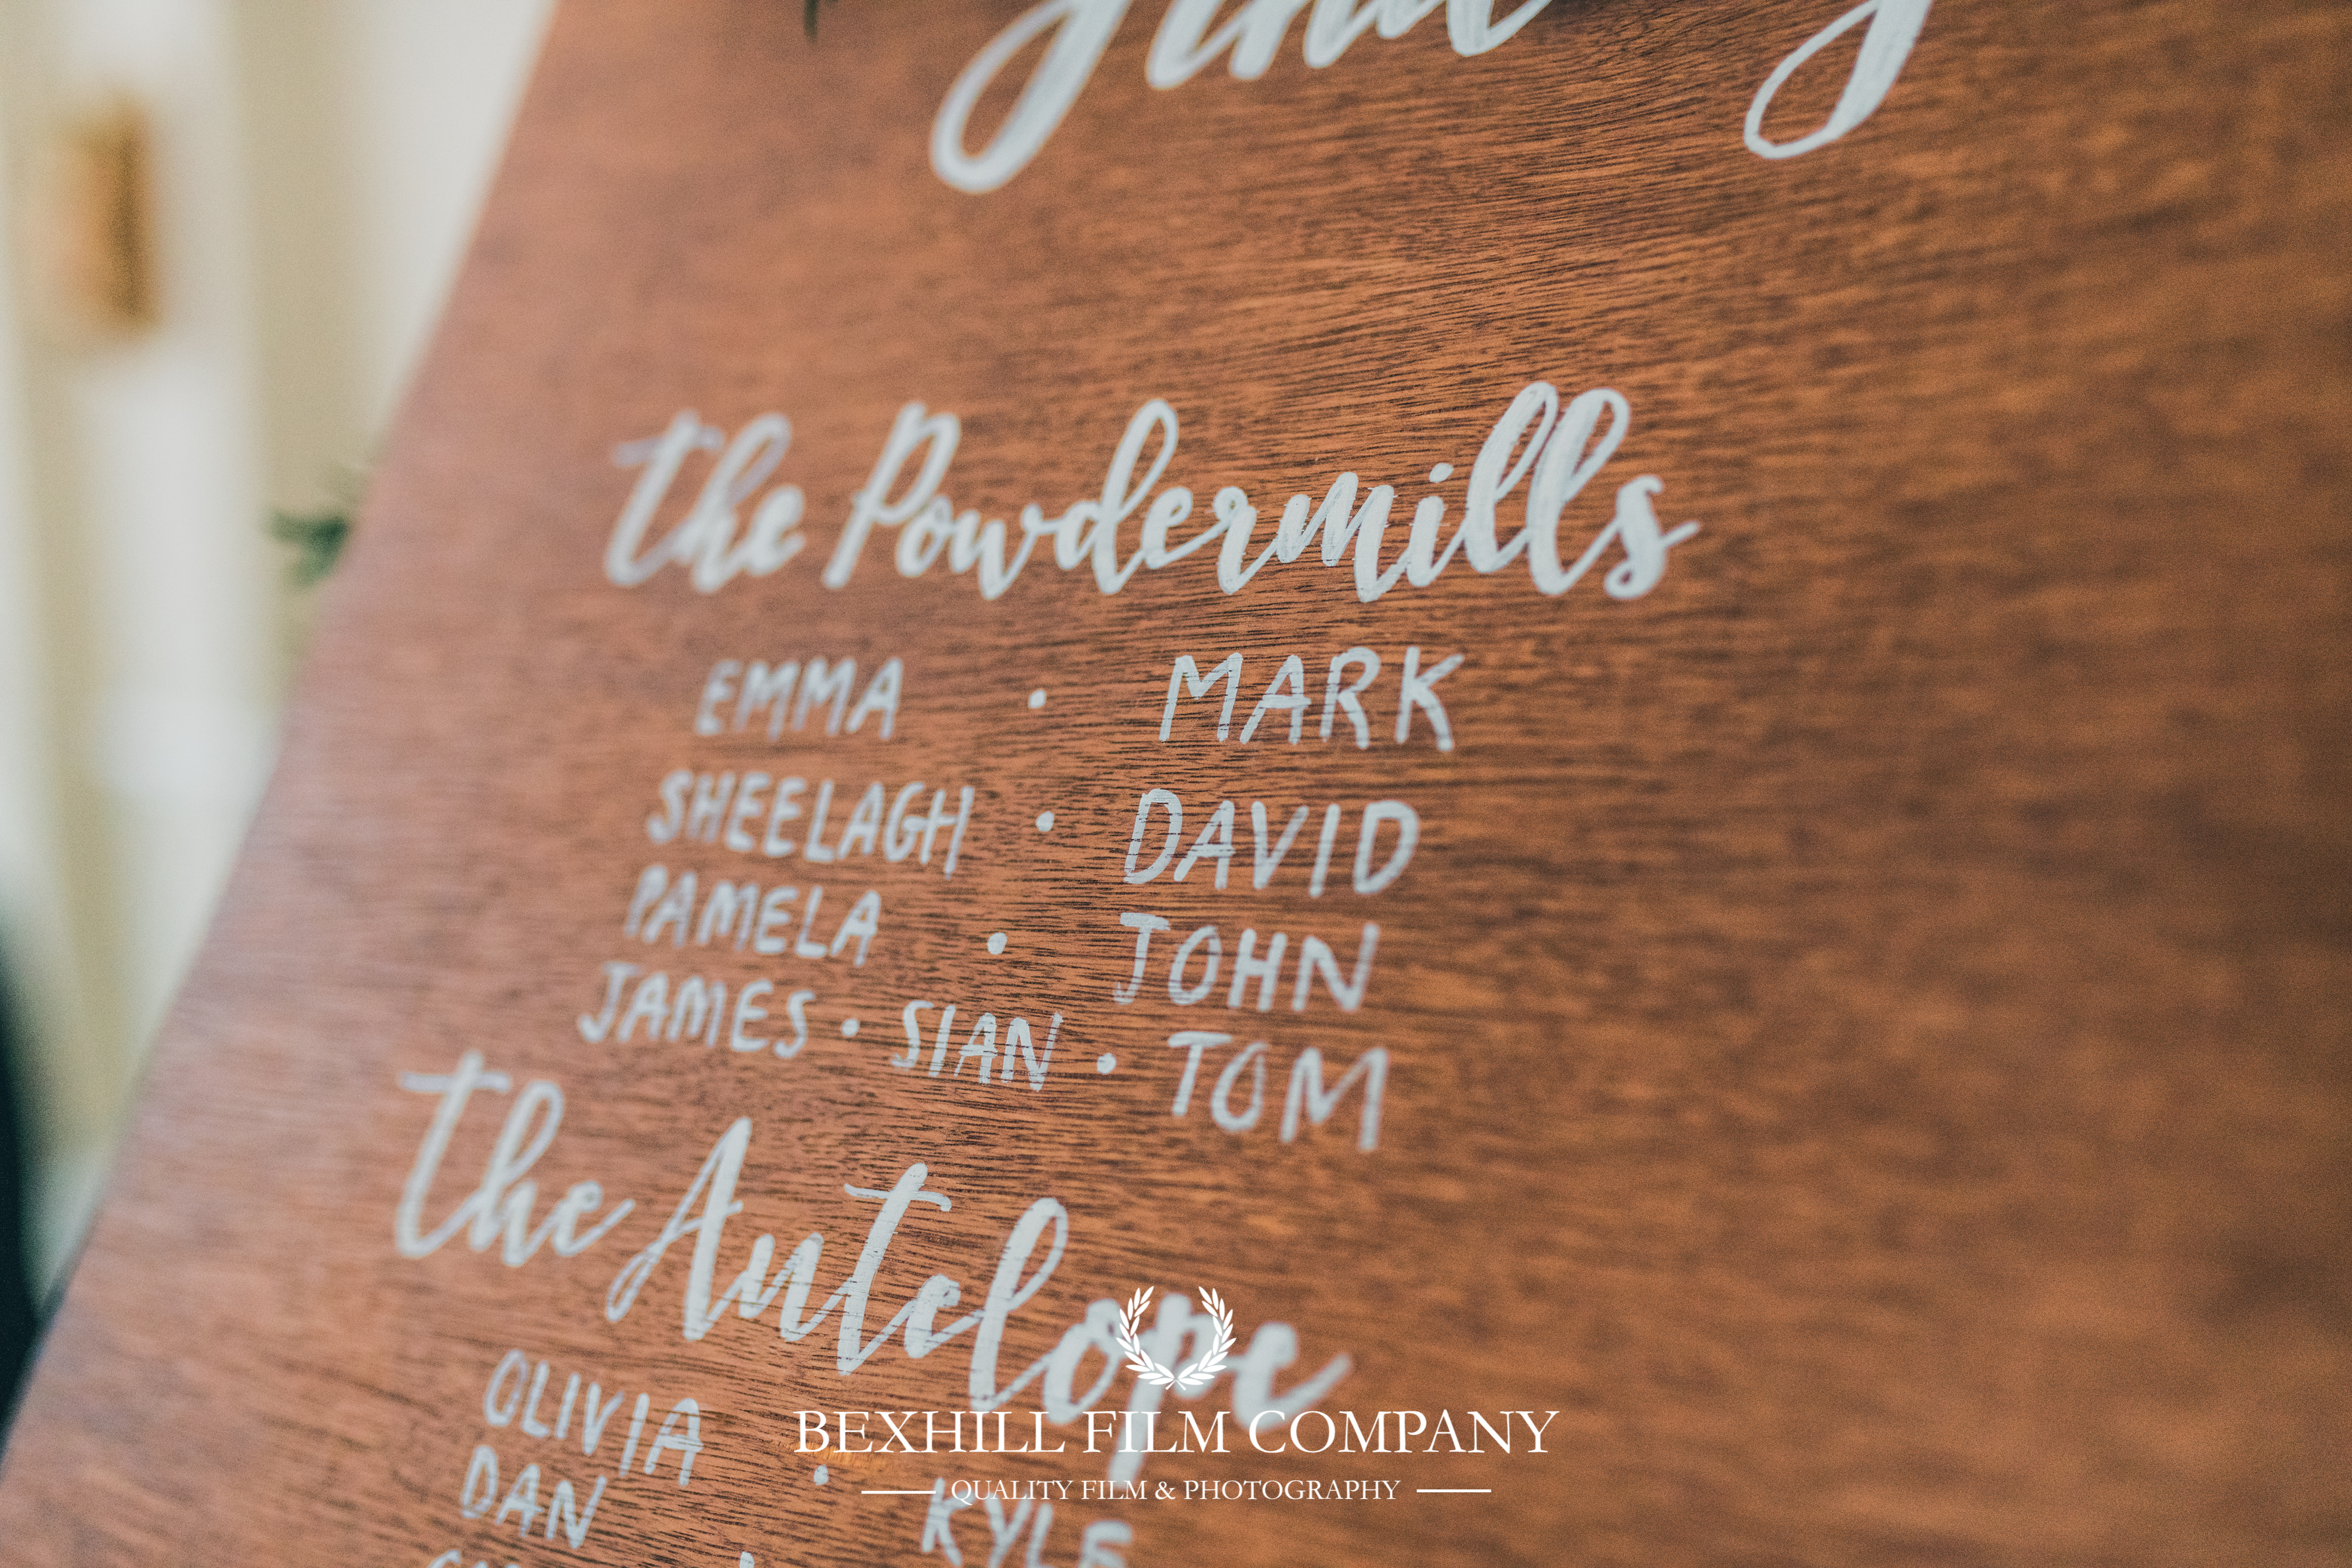 the Powdermills
EMMA · MARK
SHEELAGH · DAVID
PAMELA · JOHN
JAMES · SIAN · TOM
the Antelope
OLIVIA · KYLE
DAN
BEXHILL FILM COMPANY
QUALITY FILM & PHOTOGRAPHY